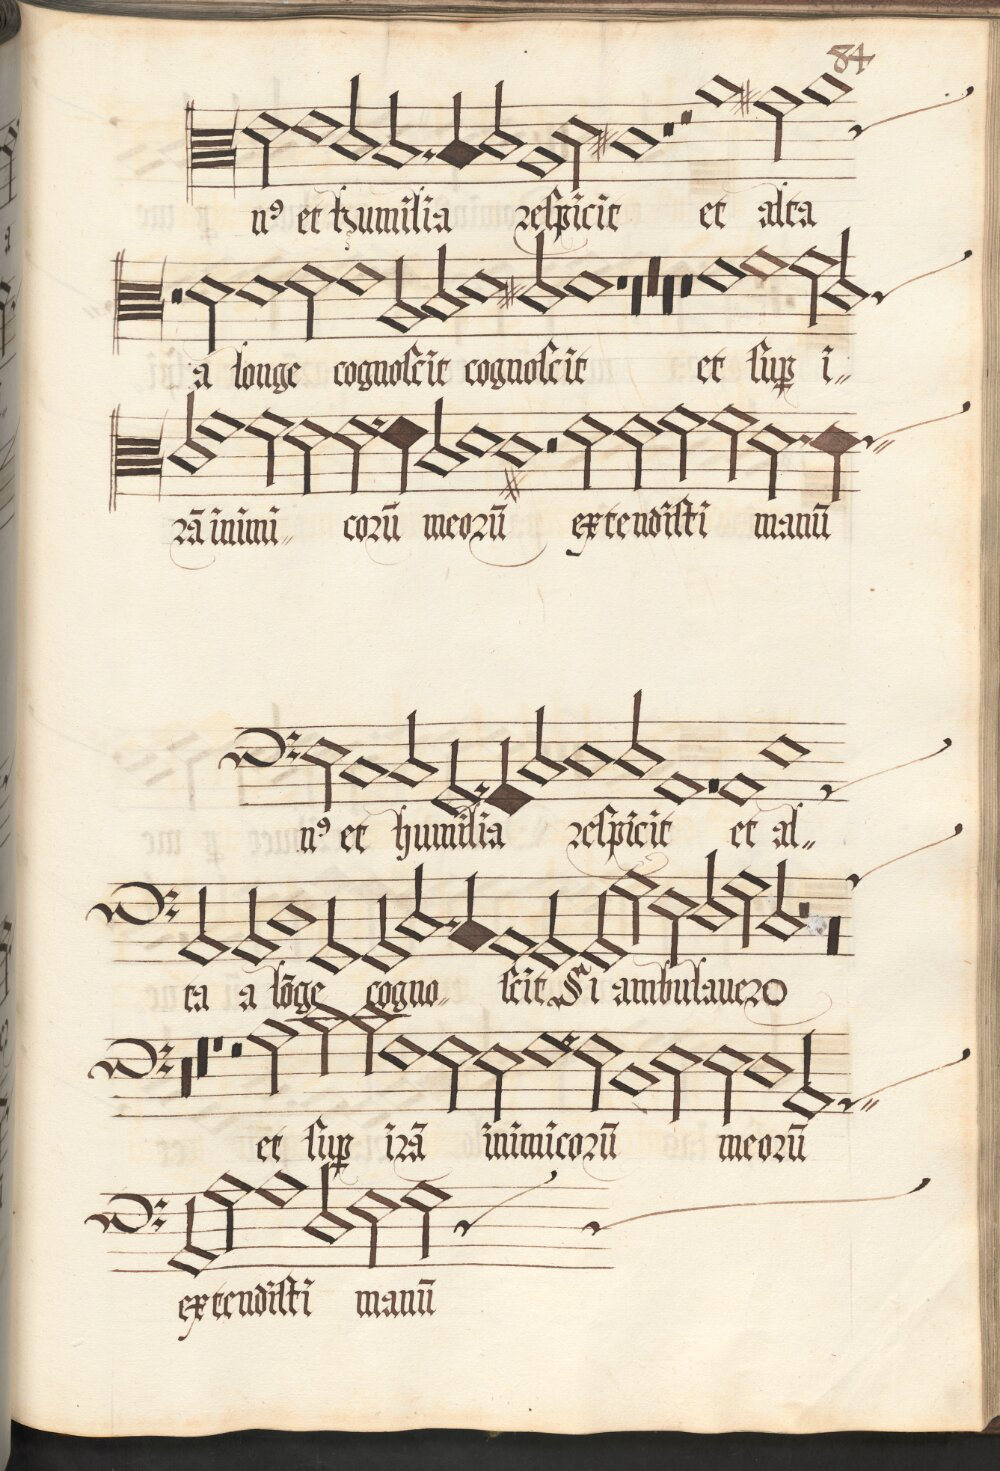 84
n⁹ et humilia respicit et alta
a longe cognoscit cognoscit et sup̲ i〃
rā inimi〃 corū meorū extendisti manū
n⁹ et humilia respicit et al〃
ta a lōge cogno〃 scit Si ambulauero
et sup̲ irā inimicorū meorū
extendisti manū